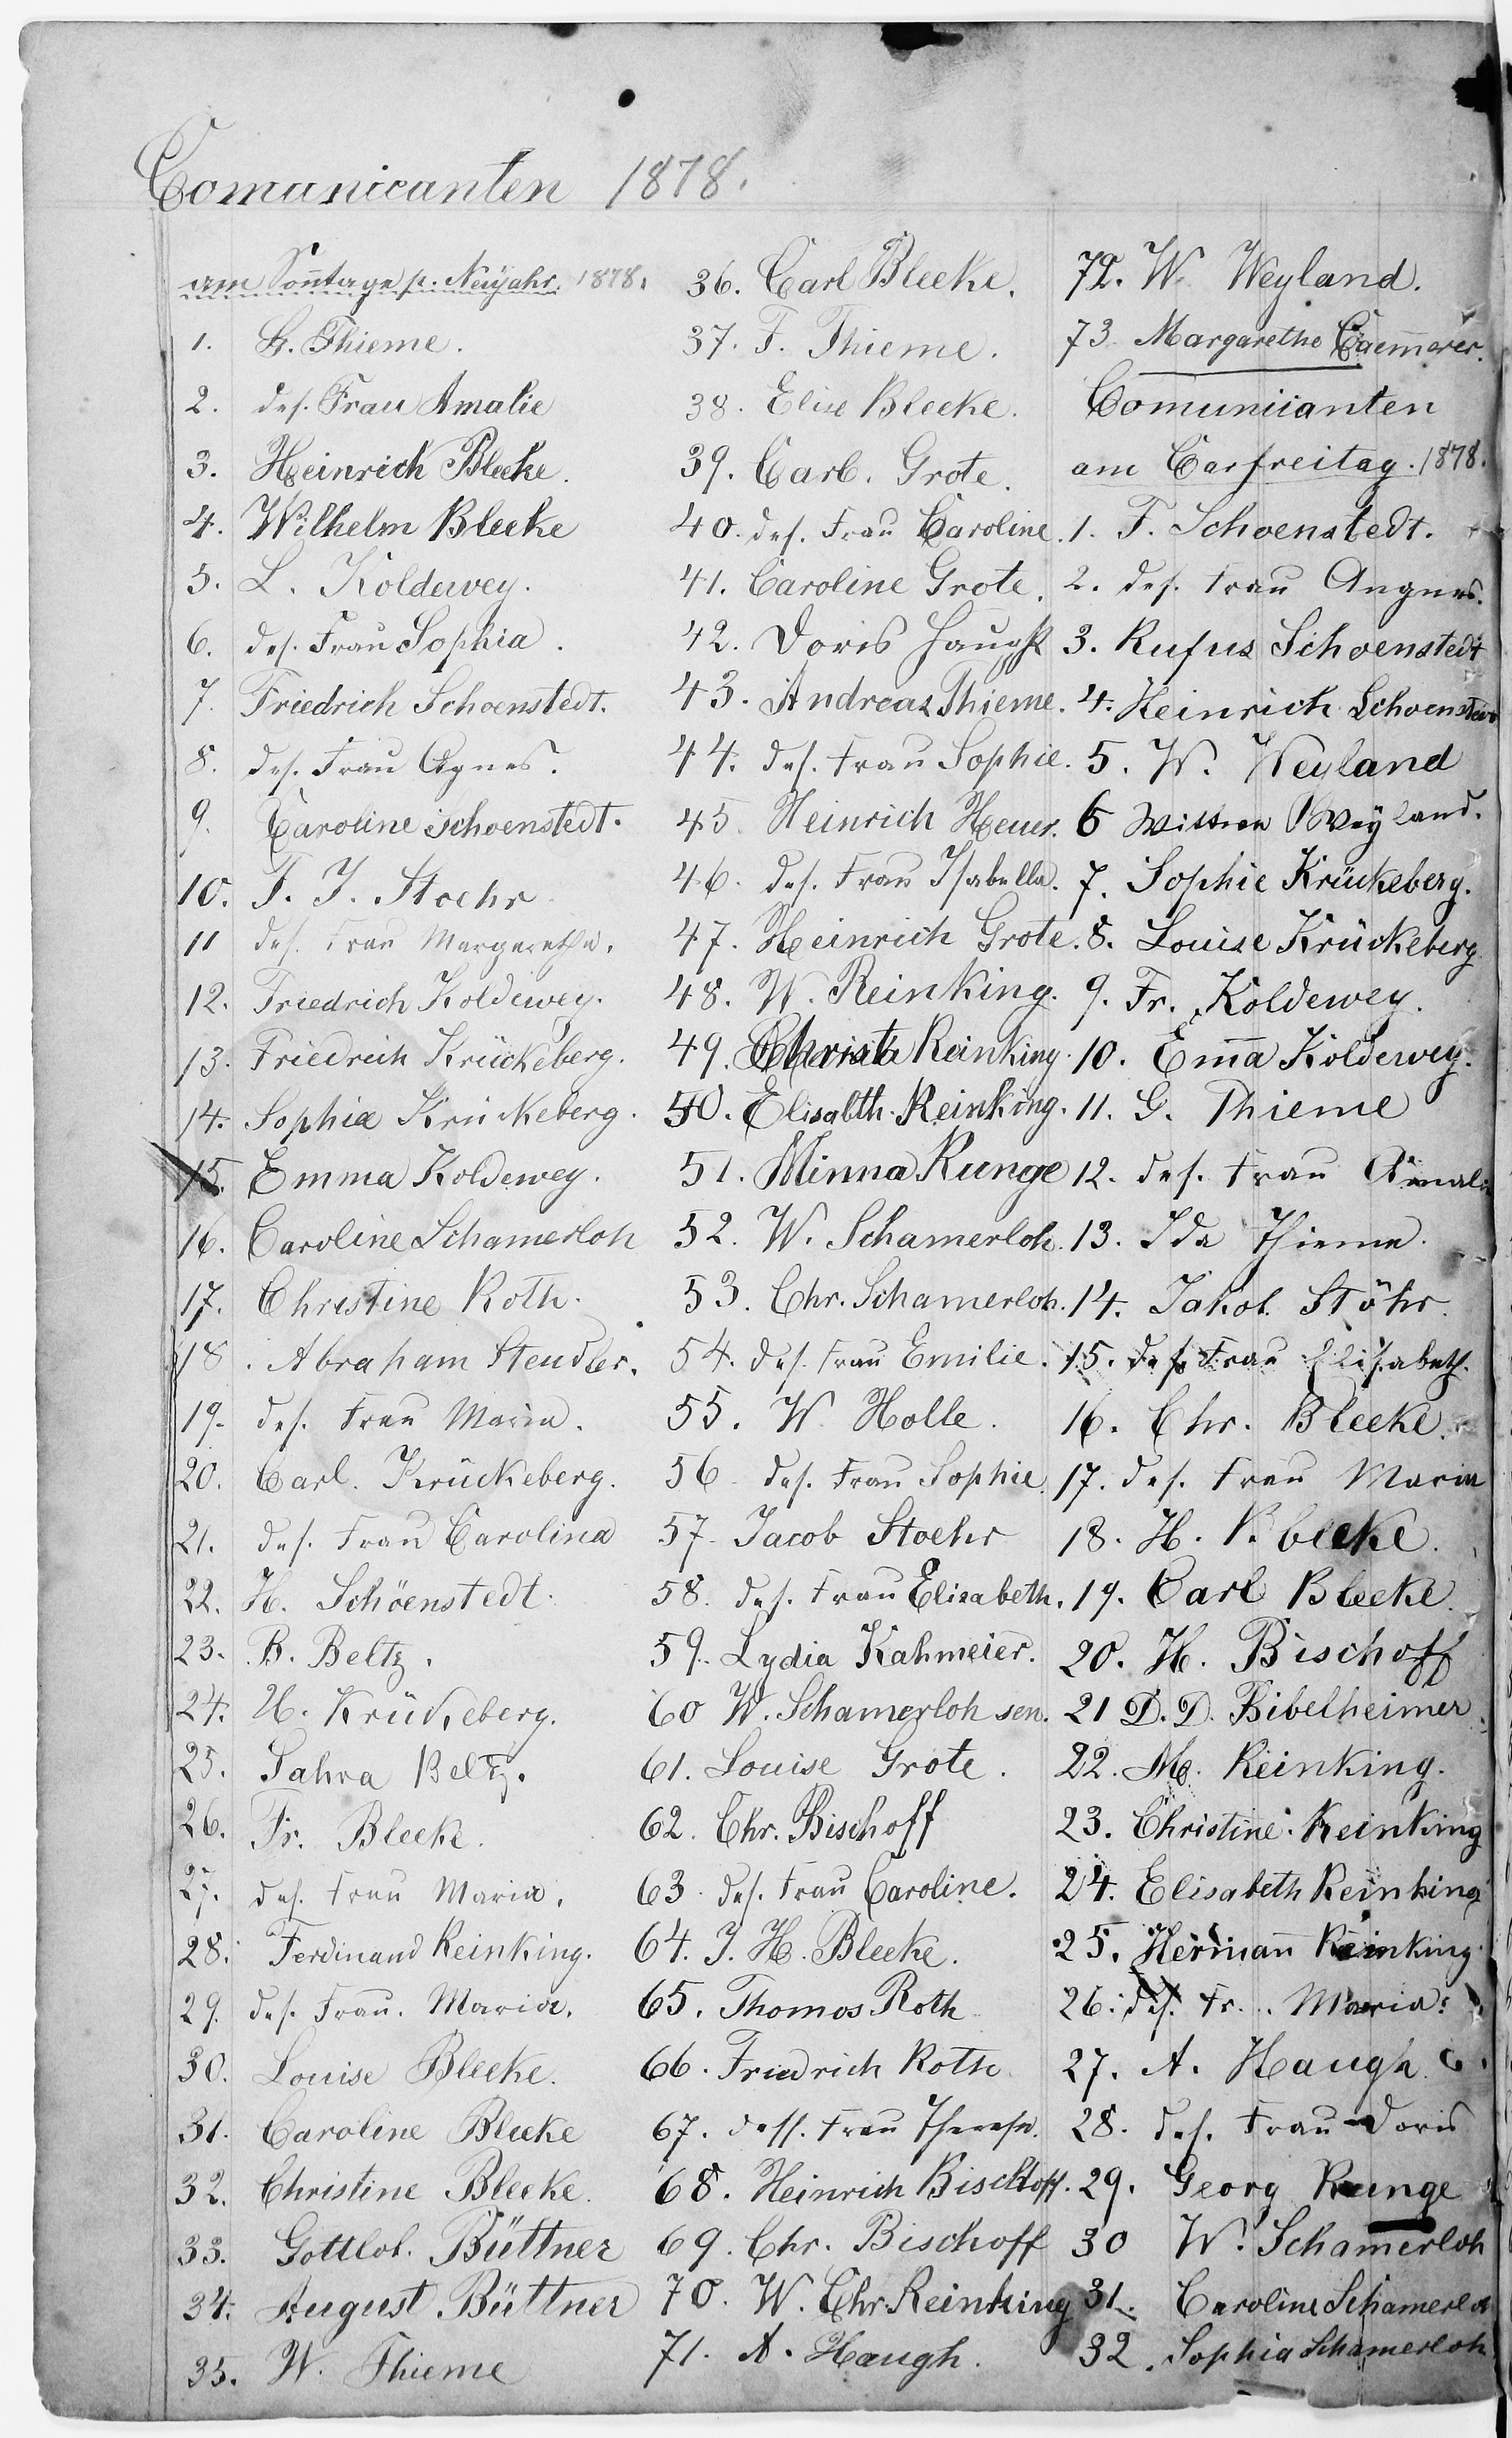 Comunicanten 1878.
am Sontage p. Neujahr. 1878.
1. G. Thieme.
2. des. Frau Amalie
3. Heinrich Bleeke.
4. Wilhelm Bleeke
5. L. Koldewey.
6. des. Frau Sophia.
7. Friedrich Schoenstedt.
8. des. Frau Agnes.
9. Caroline Schoenstedt.
10. F. J. Stoehr
11 des. Frau Margarethe.
12. Friedrich Koldewey.
13. Friedrich Krückeberg.
14. Sophia Krückeberg.
15. Emma Koldewey.
16. Caroline Schamerloh
17. Christine Roth.
18. Abraham Steudler.
19. des. Frau Maria.
20. Carl. Krückeberg.
21. des. Frau Carolina
22. H. Schöenstedt.
23. B. Beltz.
24. H. Krückeberg.
25. Sahra Beltz.
26. Fr. Bleeke.
27. des. Frau Maria.
28. Ferdinand Reinking.
29. des. Frau. Maria.
30. Louise Bleeke.
31. Caroline Bleeke
32. Christine Bleeke.
33. Gottlob. Büttner
34. August Büttner
35. W. Thieme
36. Carl Bleeke.
37. F. Thieme.
38. Elise Bleeke.
39. Carl. Grote.
40. des. Frau Caroline.
41. Caroline Grote.
42. Doris Haugh
43. Andreas Thieme.
44. des. Frau Sophie.
45. Heinrich Heuer.
46. des. Frau Isabella.
47. Heinrich Grote.
48. W. Reinking.
49. Reinking.
50. Elisabth. Reinking.
51. Minna Runge
52. W. Schamerloh.
53. Chr. Schamerloh.
54. des. Frau Emilie.
55. W. Holle.
56 des. Frau Sophie.
57. Jacob Stoehr
58. des. Frau Elisabeth.
59. Lydia Kahmeier.
60 W. Schamerloh sen.
61. Louise Grote.
62. Chr. Bischoff
63. des. Frau Caroline.
64. J. H. Bleeke.
65. Thomas Roth
66. Friedrich Roth
67. dess. Frau Therese.
68. Heinrich Bischoff.
69. Chr. Bischoff
70. W. Chr. Reinking
71. A. Haugh.
72. W. Weyland.
73. Margarethe Caemerer.
Comunicanten
am Carfreitag. 1878.
1. F. Schoenstedt.
2. des. Frau Angnes.
3. Rufus Schoenstedt
4. Heinrich Schoenstedt
5. W. Weyland
6 Weyland.
7. Sophie Krückeberg.
8. Louise Krückeberg
9. Fr. Koldewey.
10. Ema Koldewey.
11. G. Thieme
12. des. Frau Amalie
13. Ida Thieme.
14. Jakob. Stöhr.
15. des. Frau Elisabeth.
16. Chr. Bleeke.
17. des. Frau Maria
18. H. Bleeke.
19. Carl Bleeke.
20. H. Bischoff
21 D. D. Bibelheimer
22. M. Reinking.
23. Christine. Reinking
24. Elisabeth Reinking
25. Hermann Reinking.
26. des. Fr. Maria.
27. A. Haugh
28. des. Frau Doris
29. Georg Runge
30 W. Schamerloh
31. Caroline Schamerloh
32. Sophia Schamerloh